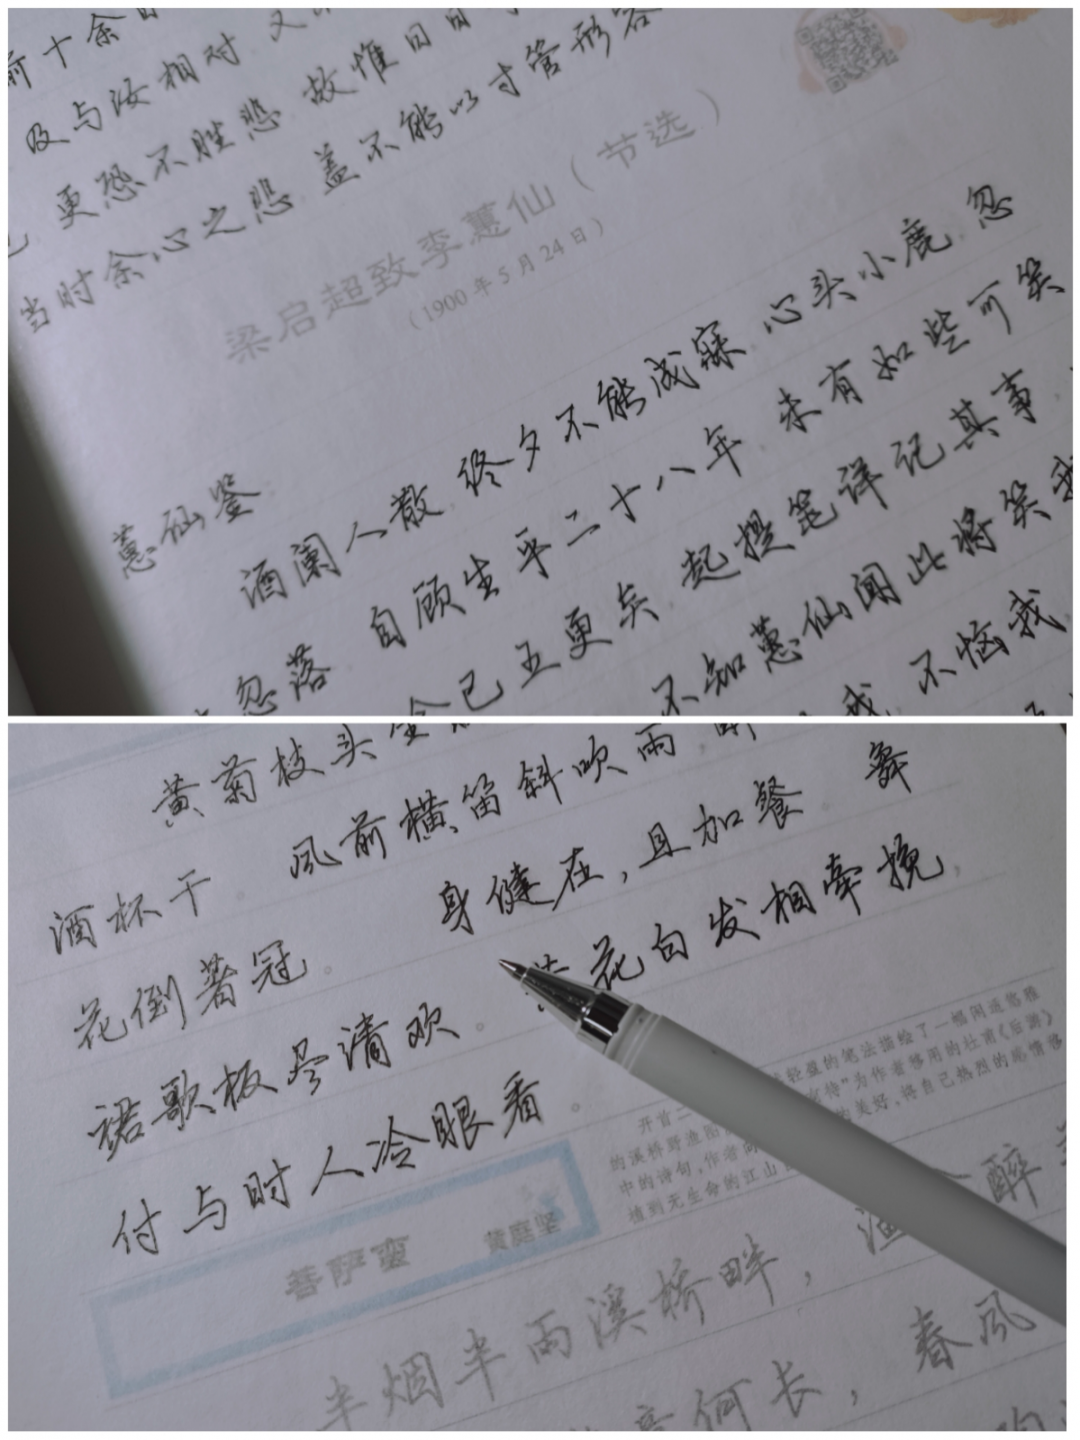 前十余日
及与汝相对 又
更恐不胜悲 故惟日日
当时余心之悲 盖不能以寸管形容
梁启超致李蕙仙（节选）
（1900年5月24日）
蕙仙鉴:
酒阑人散 终夕不能成寐 心头小鹿 忽
忽落 自顾生平二十八年 未有如此可笑
今已五更矣 起提笔详记其事
不知蕙仙闻此将笑我
我 不恼我
黄菊枝头生
风前横笛斜吹雨
酒杯干。
身健在,且加餐 舞
花倒著冠。
花白发相牵挽,
裙歌板尽清欢。
付与时人冷眼看。
轻盈的笔法描绘了一幅闲适悠雅
开首二
何待”为作者移用的杜甫《后游》
的溪桥野渔阳
的美好,将自己热烈的感情移
中的诗句,作者
植到无生命的江山
菩萨蛮 黄庭坚
半烟半雨溪桥畔, 渔 醉
意何长, 春风